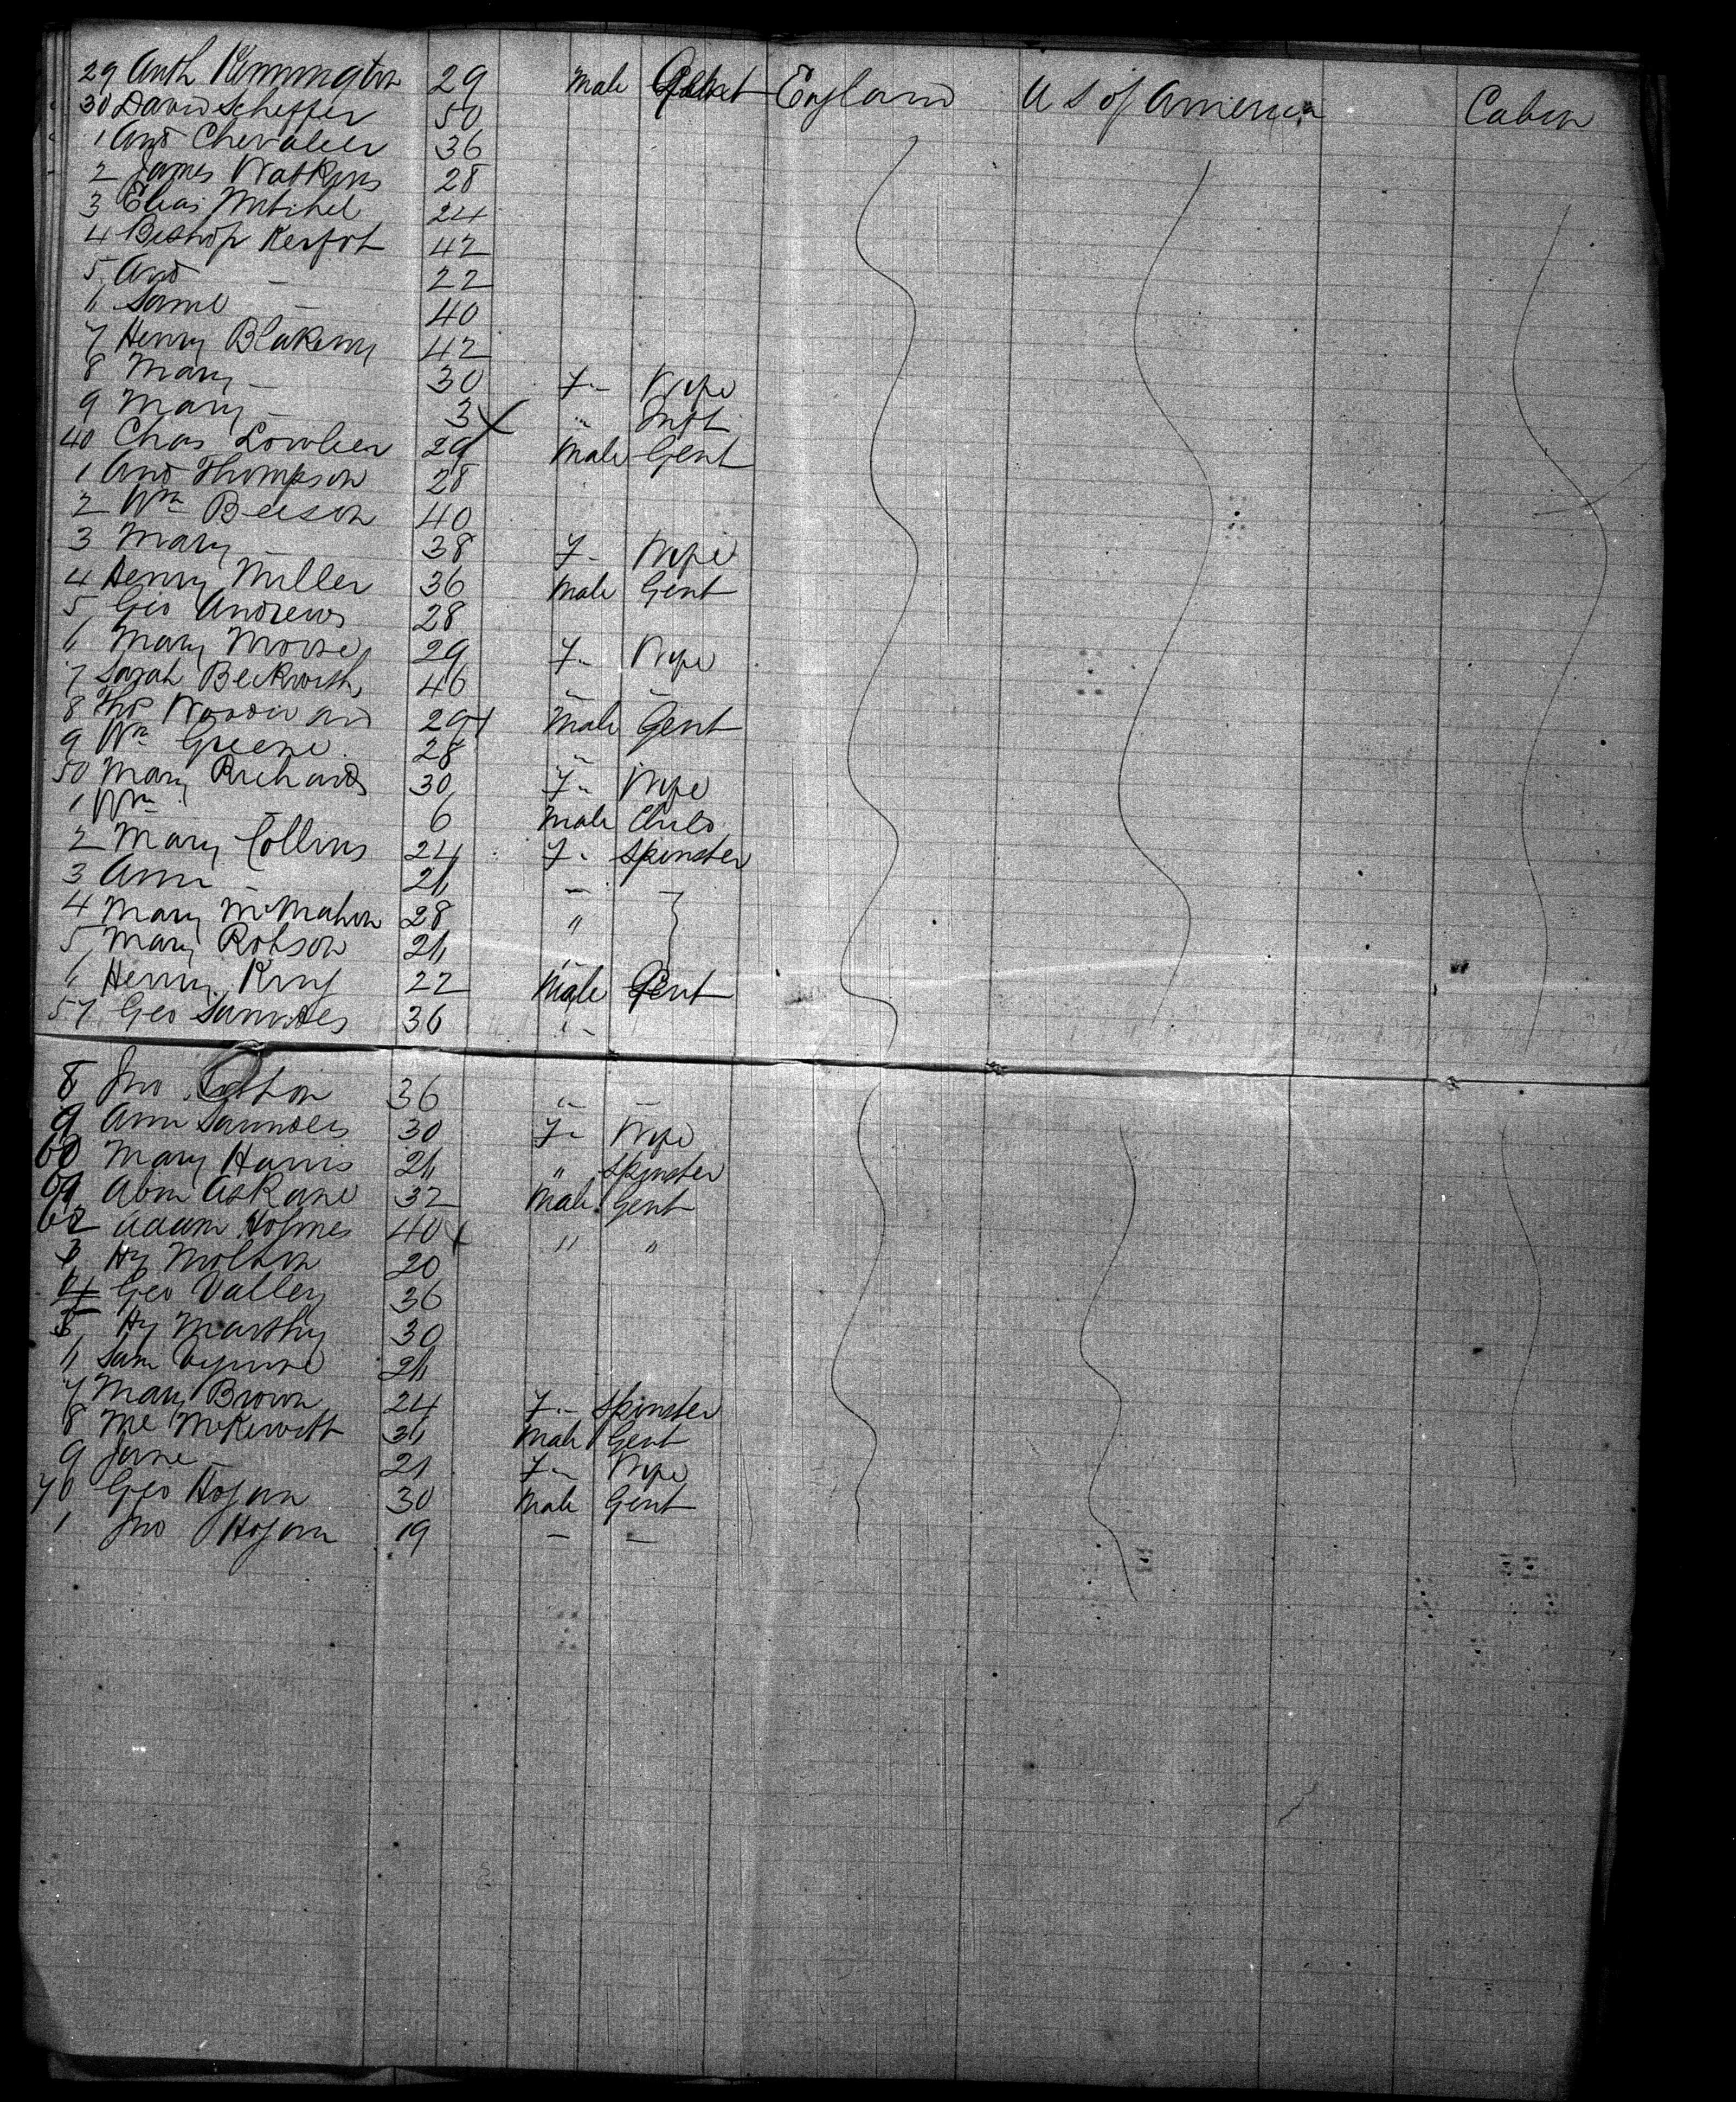 29 Auth Remmington 29 Male Gent England U S of America Cabin
30 David Scheffer 50
1 And Chevalier 36
2 James Watkins 28
3 Elias Mitchel 24
4 Bishop Kerfot 42
5 And — 22
6 Same — 40
7 Henry Blakeny 42
8 Mary — 30 F " Wife
9 Mary — 3 " Inft
40 Chas Lowber 29 Male Gent
1 And Thompson 28
2 Wm Beeson 40
3 Mary — 38 F " Wife
4 Henry Miller 36 Male Gent
5 Geo Andrews 28
6 Mary Moore 29 F " Wife
7 Sarah Beckwith 46 " "
8 Ths Woodward 29 Male Gent
9 Wm Greene 28 " "
50 Mary Richards 30 F " Wife
1 Wm — 6 Male Child
2 Mary Collins 24 F " Spinster
3 Ann — 26 — —
4 Mary McMahon 28 "
5 Mary Robson 26 "
6 Henry King 22 Male Gent
57 Geo Saunders 36 "
8 Jno 36 " —
9 Ann Saunders 30 F " Wife
60 Mary Harris 26 " Spinster
61 Abm Askane 32 Male Gent
62 Adam Holmes 40 " "
3 Hy Molton 20
4 Geo Valley 36
5 Hy 30
6 Sam 26
7 Mary Brown 24 F " Spinster
8 36 Male Gent
9 Jane — 21 F " Wife
70 Geo Hogan 30 Male Gent
1 Jno Hogan 19 — —